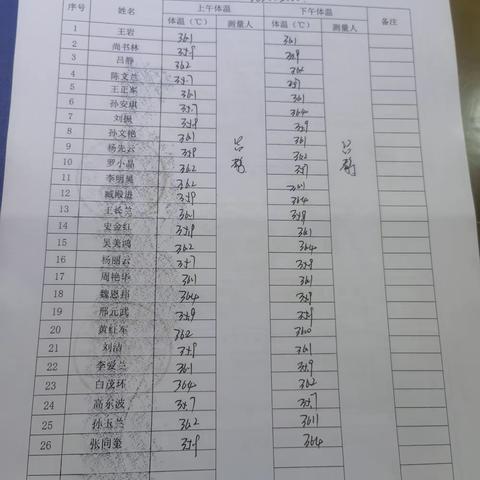 序号 姓名 上午体温 下午体温 备注
体温（℃） 测量人 体温（℃） 测量人
1 王岩 36.1 36.1
2 尚书林 35.9 35.9
3 吕静 36.2 36.4
4 陈文兰 35.7 35.7
5 王正军 36.1 36.1
6 孙安琪 35.7 36.4
7 刘振 35.9 35.9
8 孙文艳 36.1 36.1
9 杨先云 35.9 36.2
10 罗小晶 36.2 35.7
11 李明昊 36.2 36.1
12 臧殿进 35.9 36.4
13 王长兰 36.1 35.9
14 史金红 35.9 36.1
15 吴美鸿 36.2 36.4
16 杨丽云 35.7 35.9
17 周艳华 36.1 36.1
18 魏恩玮 36.4 35.9
19 邢元武 35.9 35.9
20 黄红军 36.2 36.0
21 刘洁 35.9 36.1
22 李爱兰 36.1 35.9
23 白茂环 36.4 36.2
24 高东波 35.7 35.7
25 孙玉兰 36.2 36.1
26 张同奎 35.9 36.4